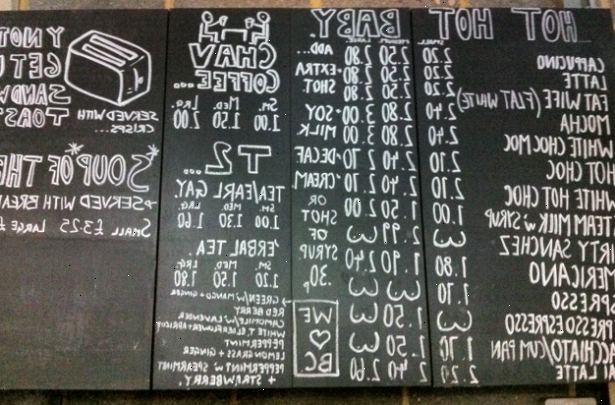 HOT HOT HOT BABY
SMALL. MEDIUM. LARGE.
CAPPUCINO 2.20 2.50 2.80
LATTE 2.20 2.50 2.80
FAT WIFE (FLAT WHITE) 2.20 2.50 2.80
MOCHA 2.40 2.80 3.00
WHITE CHOC MOC 2.80 3.00
HOT CHOC 2.10 2.40 2.70
WHITE HOT CHOC 2.10 2.40 2.70
STEAM MILK w/ SYRUP 1.00 1.50 2.00
RTY SANCHEZ 2.99
ERICANO 1.80 1.90 2.40
PRESSO 1.10
RESSO ESPRESSO 1.50
ACCHIATO/CUM PAN 1.70 1.50
AI LATTE 2.20 2.40 2.60
ADD...
-EXTRA
SHOT
-SOY
MILK
-DECAF
"CREAM"
OR
SHOT
OF
SYRUP
30p
WE
♡
BC
CHAV
COFFEE...
SM. MED. LRG.
1.00 1.50 2.00
TZ...
TEA/EARL GAY
SM. MED. LRG.
1.00 1.30 1.60
'ERBAL TEA
SM. MED. LRG.
1.20 1.50 1.80
→ GREEN w/ MANGO + GINGER
RED BERRY
CAMOMILE w/ LAVENDER
WHITE T. ELDERFLOWER + APRICOT
PEPPERMINT
LEMON GRASS + GINGER
PEPPERMINT w/ SPEARMINT
+ STRAWBERRY.
Y NOT
GET
SAND
TOAS
SERVED WITH
CRISPS...
*SOUP OF THE
→ SERVED WITH BREA
SMALL £3.25 LARGE £